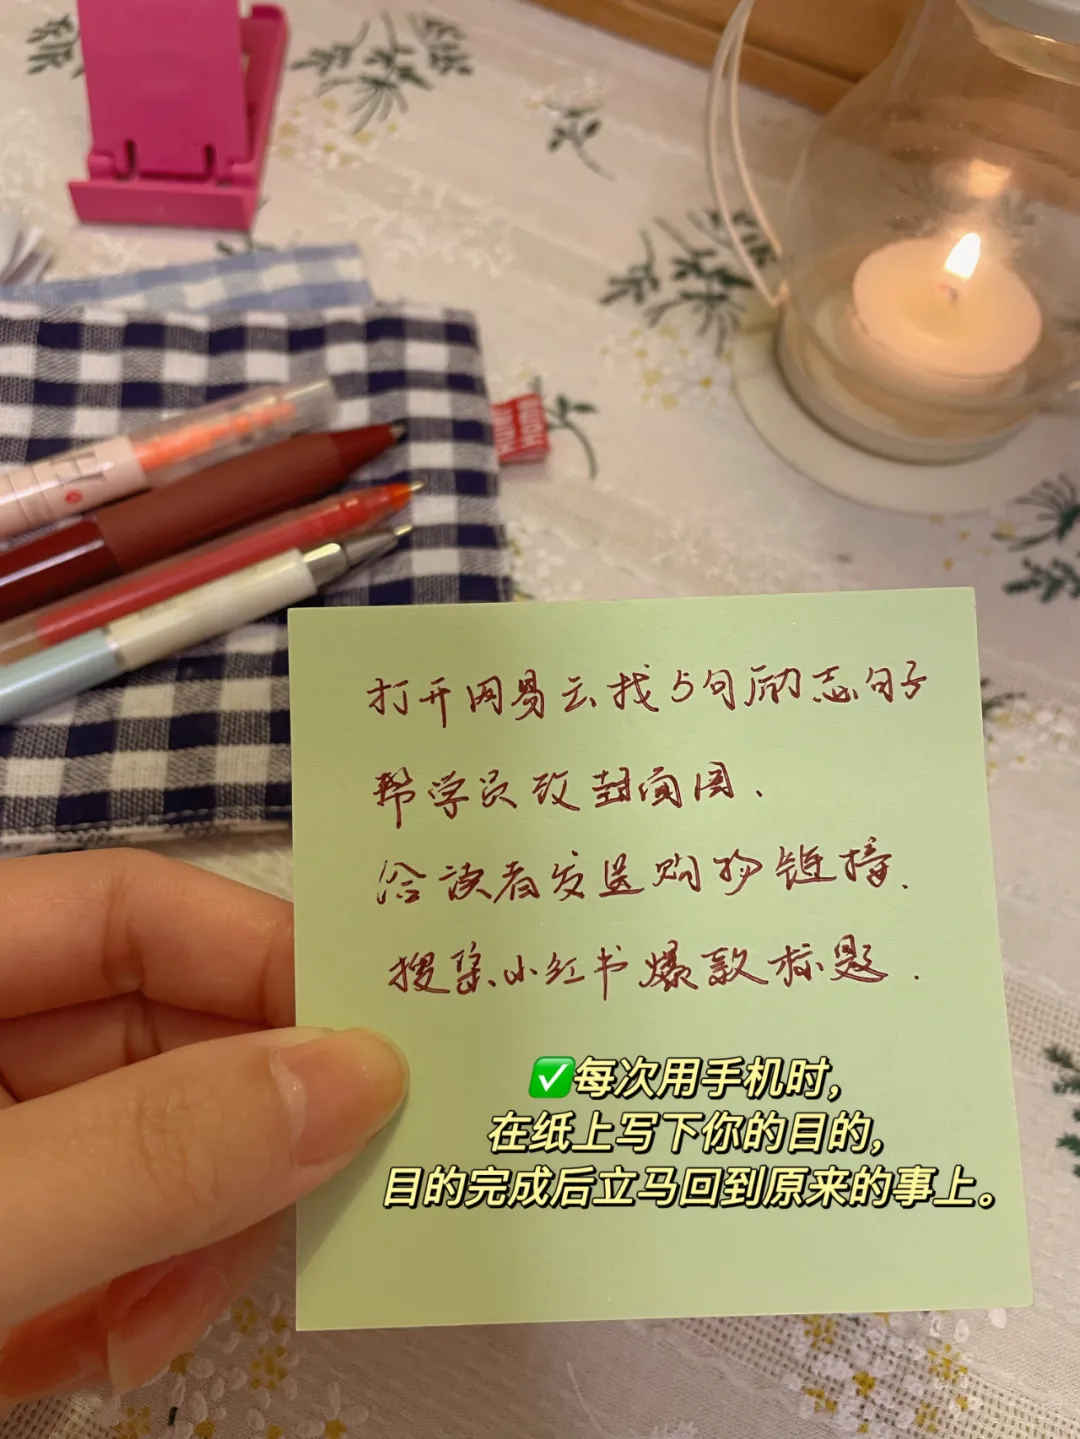 打开网易云找5句励志句子
帮学员改封面图、
给读者发送购物链接、
搜集小红书爆款标题.
✅每次用手机时，
在纸上写下你的目的，
目的完成后立马回到原来的事上。